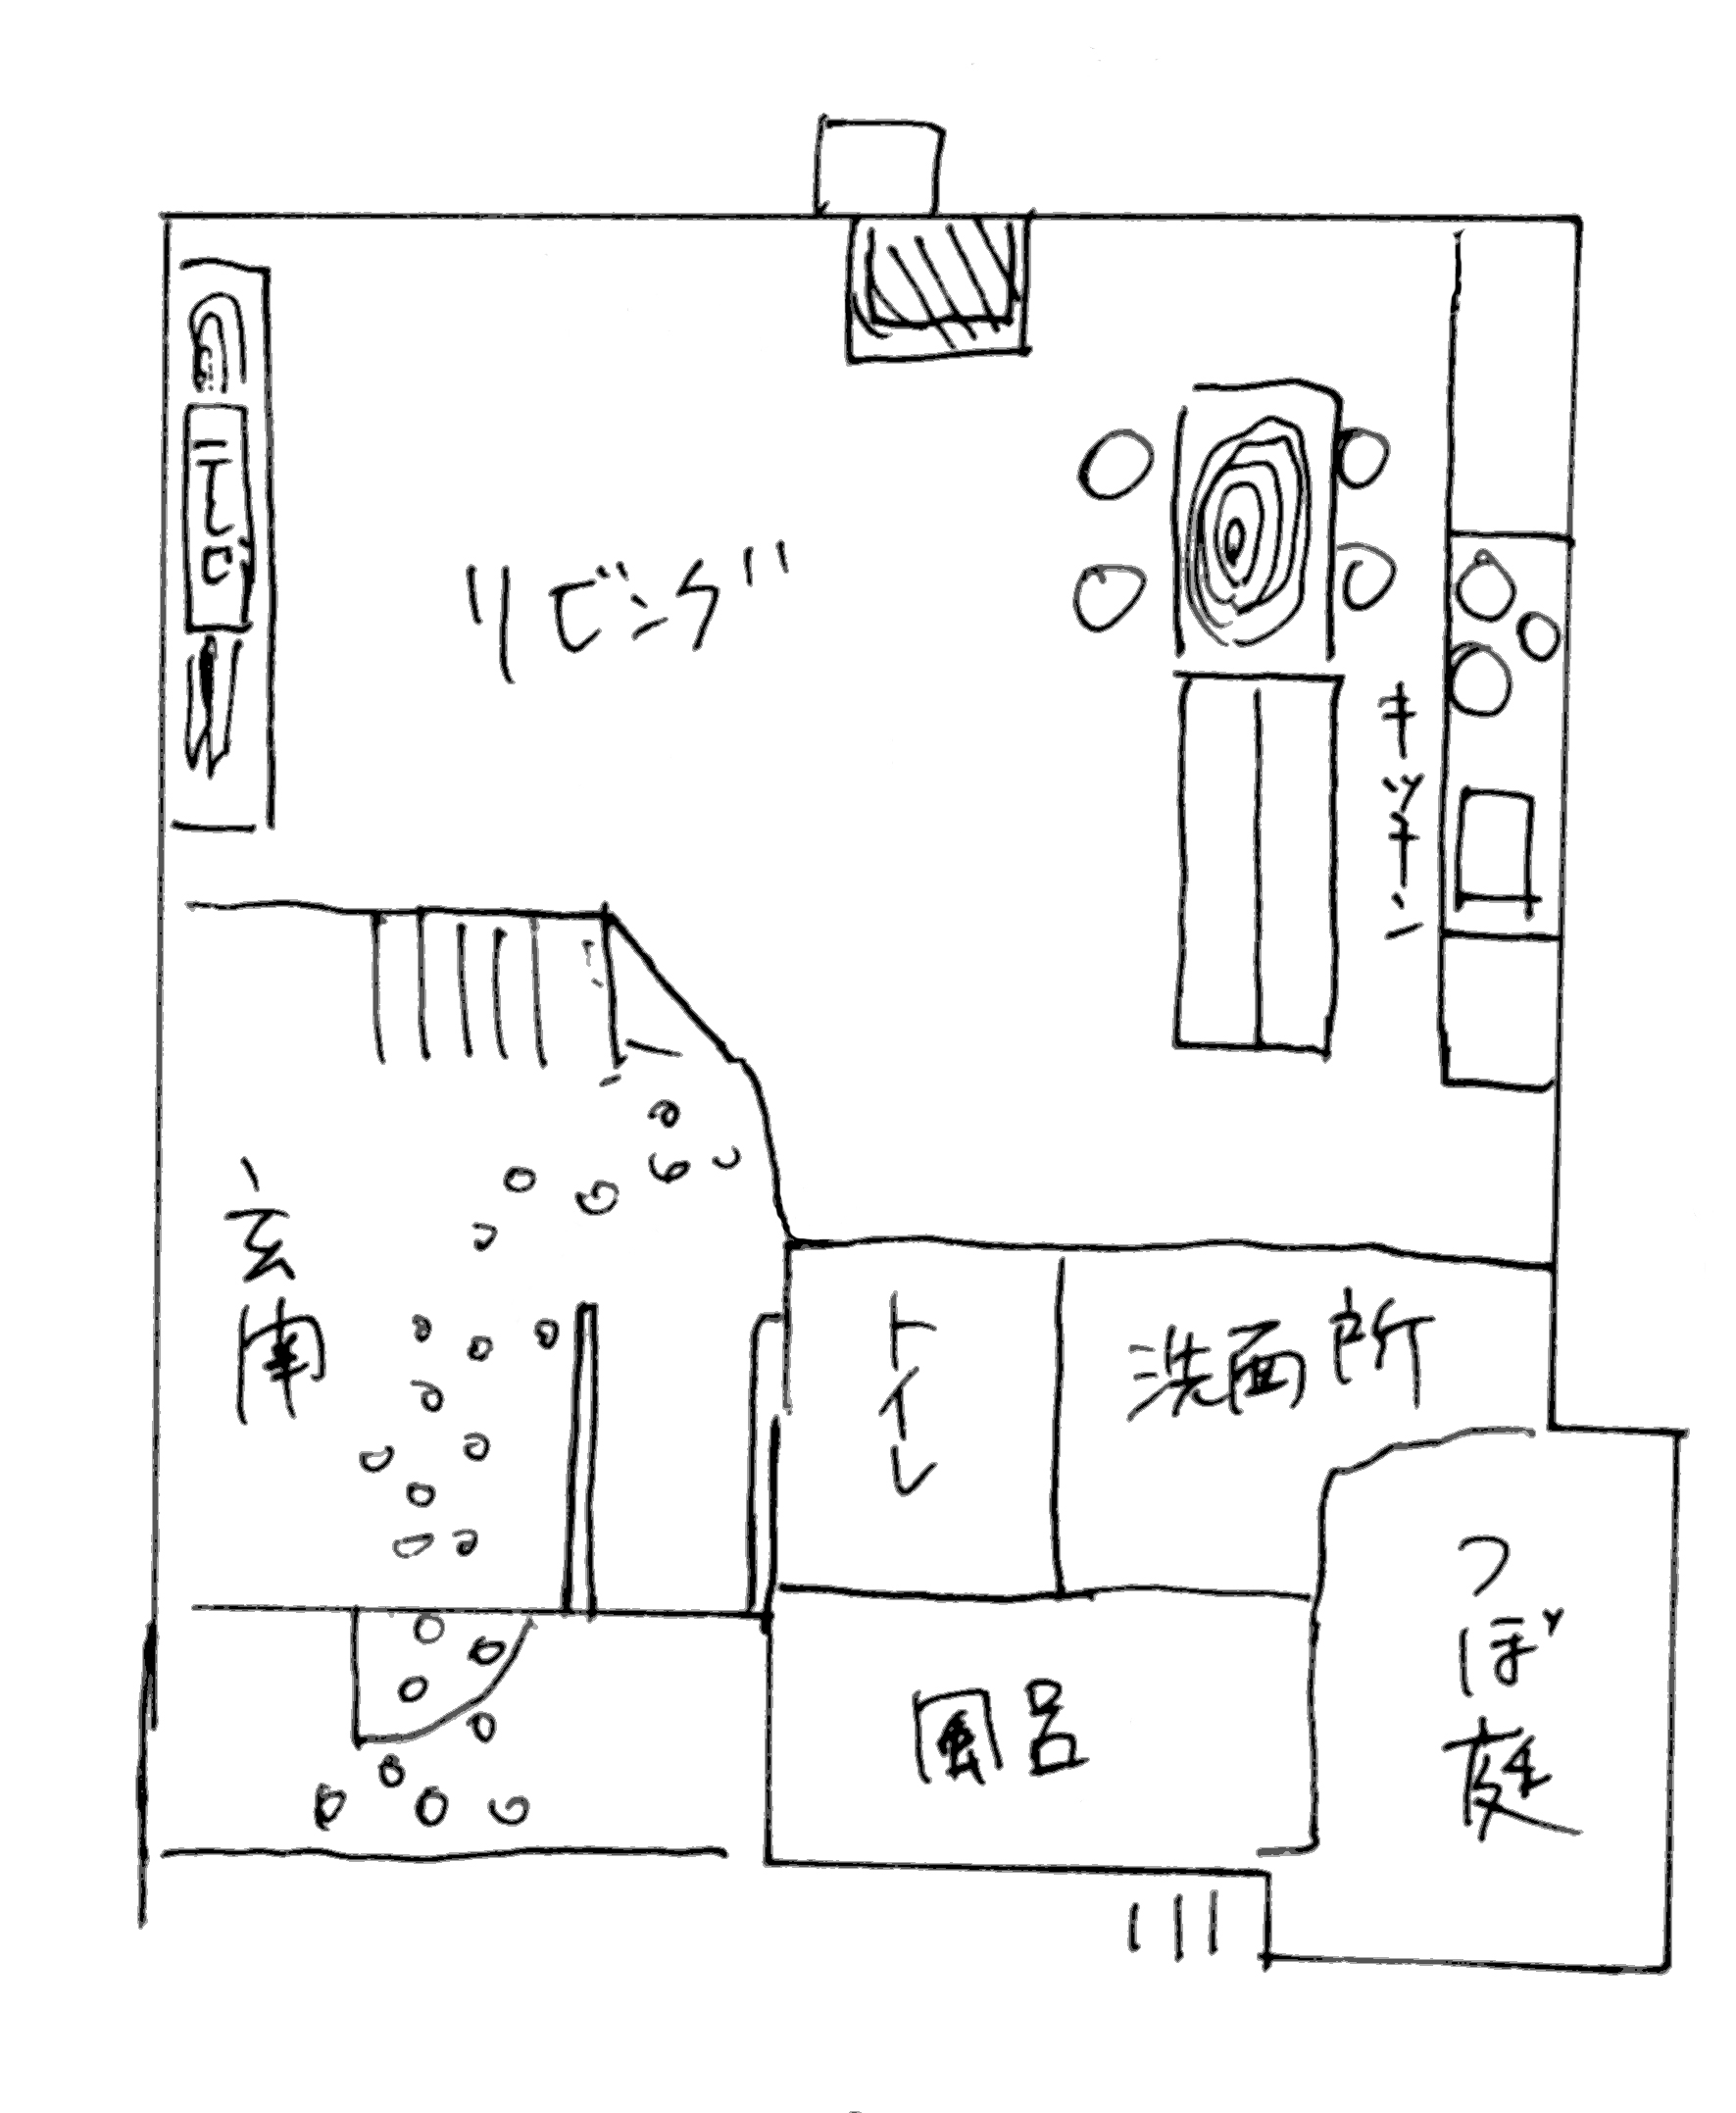 テレビ
リビング
キッチン
玄関
トイレ
洗面所
風呂
つぼ庭